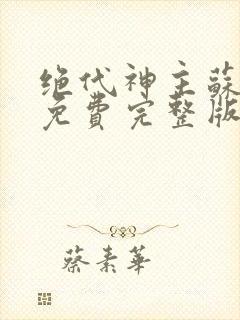 绝代神主蘇
免費完整版
蔡素華